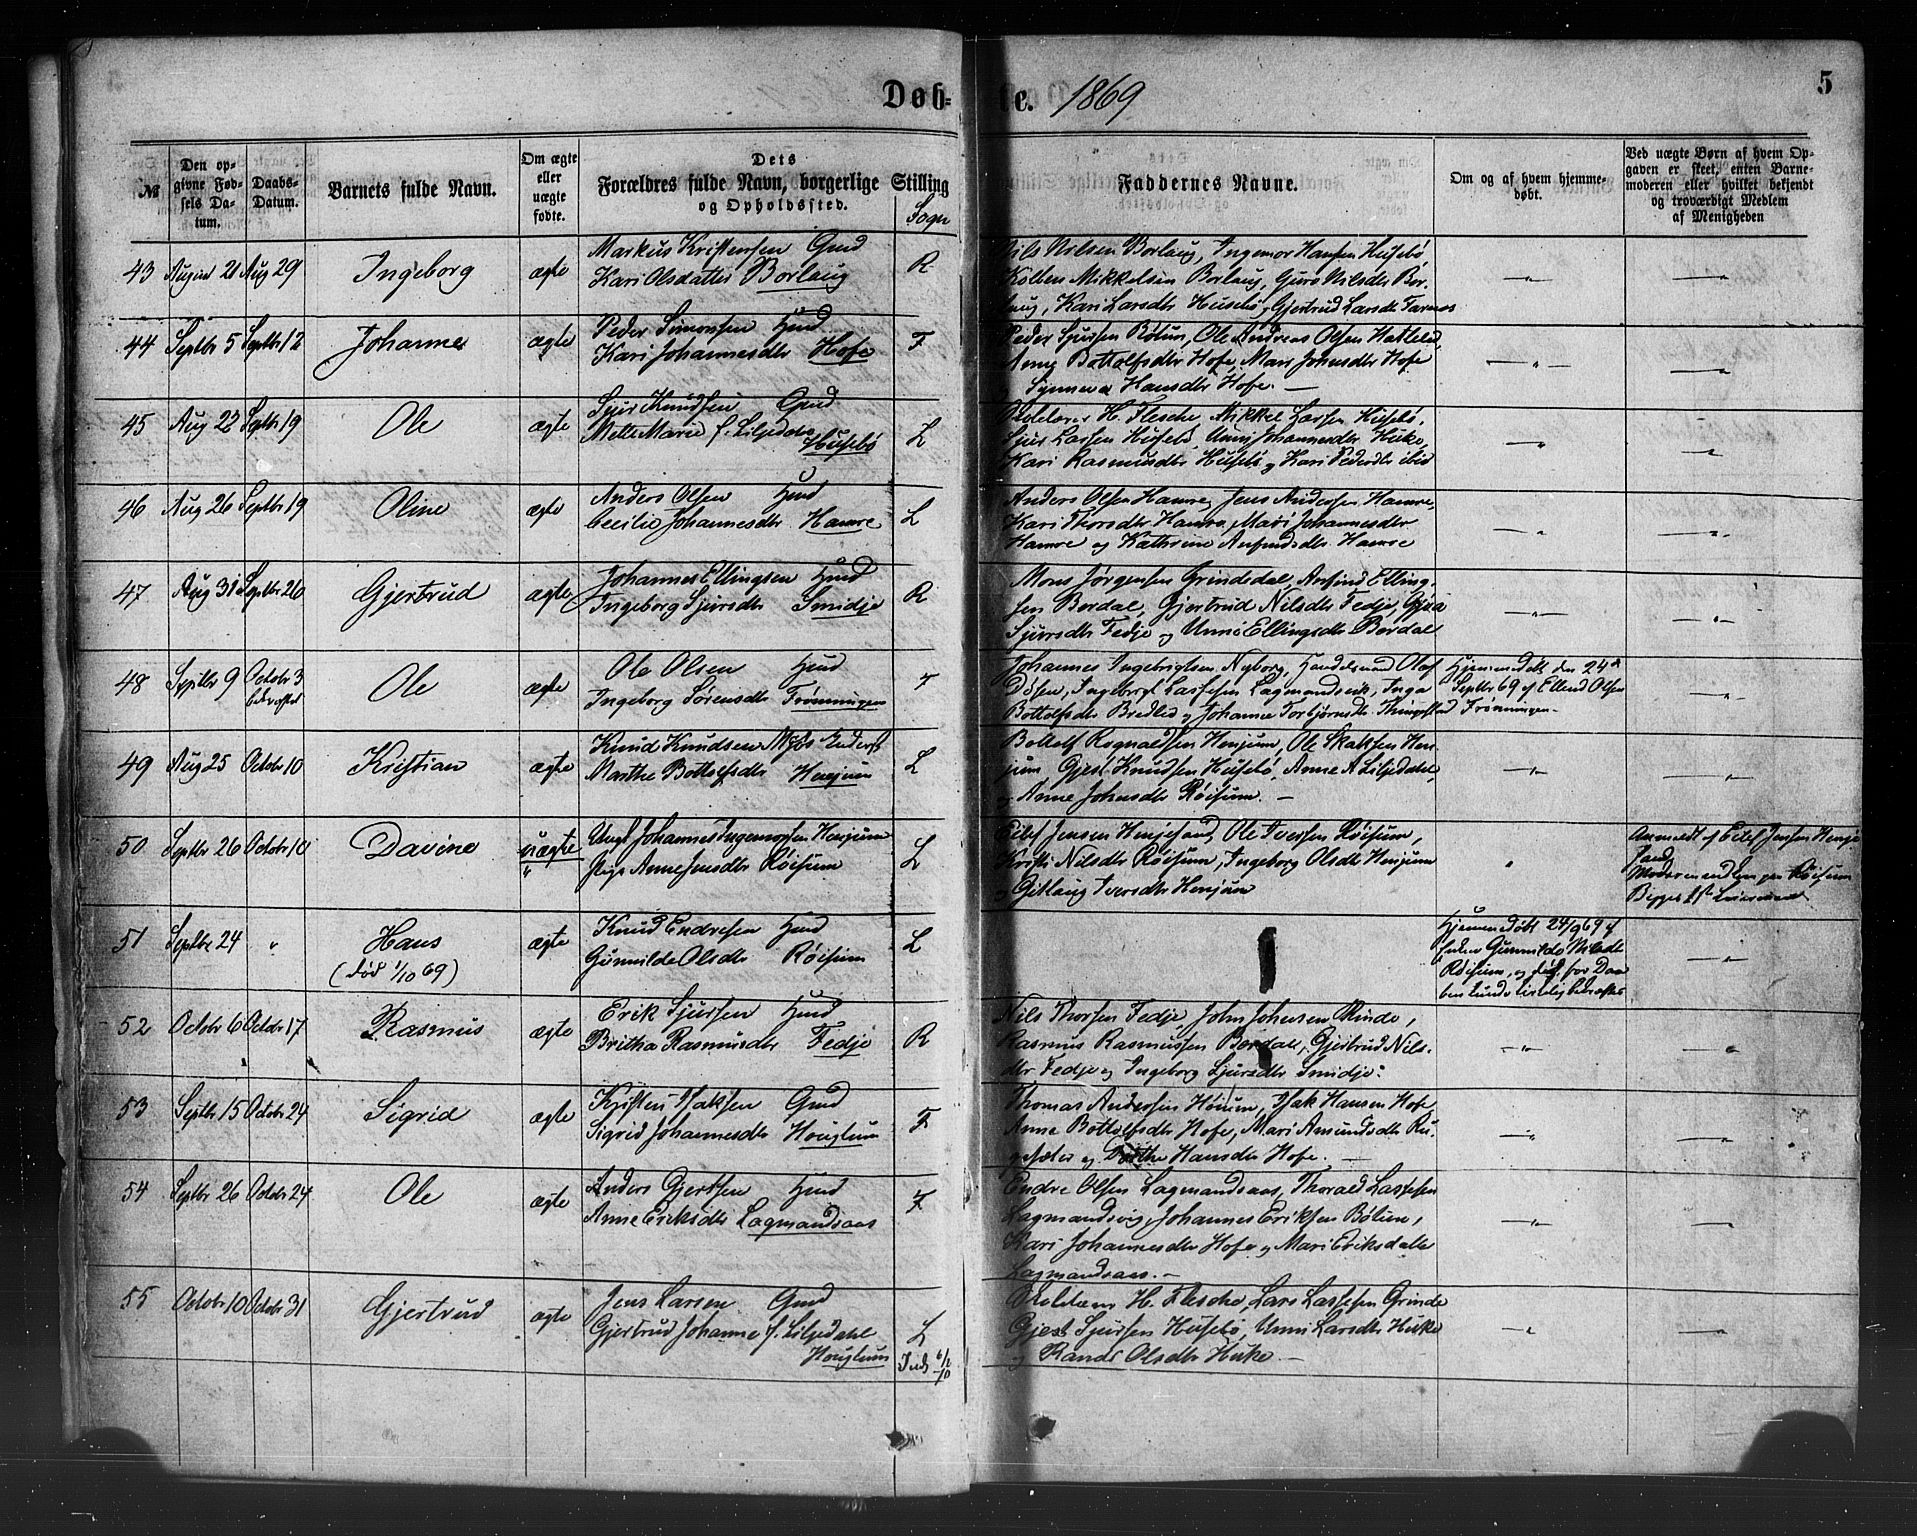 Døb-
te. 1869
5
№
Den op-
givne Fød-
sels Da-
tum.
Daabs-
Datum.
Barnets fulde Navn.
Om ægte
eller
uægte
fødte.
Dets
Forældres fulde Navn, borgerlige Stilling
og Opholdssted.
Sogn
Faddernes Navne.
Om og af hvem hjemme-
døbt.
Ved uægte Børn af hvem Op-
gaven er skeet, enten Barne-
moderen eller hvilket bekjendt
og troværdigt Medlem
af Menigheden
43 August 21 Aug 29 Ingeborg ægte Markus Kristensen Gmd
Kari Olsdatter Borlaug R
Nils Nilsen Borlaug, Ingemor Hansen Husebø
Kolben Mikkelsen Borlaug, Guro Nilsdtr Bor-
laug, Kari Larsdtr Husebø, Gjertrud Larsdtr
44 Septbr 5 Septbr 12 Johanne ægte Peder Simonsen Hmd
Kari Johannesdtr Hofe F
Peder Sjursen Bølum, Ole Andreas Olsen Hatleli,
Anna Bottolfsdtr Hofe, Mari Johnsdtr Hofe
Synneva Hansdtr Hofe. —
45 Aug 22 Septbr 19 Ole ægte Sjur Knudsen Gmd
Mette Marie f. Liljedahl
Husebø L
H. Flesche, Mikkel Larsen Husebø,
Sjur Larsen Husebø, Unni Johannesdtr Huke,
Kari Rasmusdtr Husebø og Kari Pedersdtr ibid
46 Aug 26 Septbr 19 Oline ægte Anders Olsen Hmd
Cecilie Johannesdtr Hamre L
Anders Olsen Hamre, Jens Andersen Hamre,
Kari Thorsdtr Hamre, Mari Johannesdtr
Hamre og Kathrine Anfindsdtr Hamre
47 Aug 31 Septbr 26 Gjertrud ægte Johannes Ellingsen Hmd
Ingeborg Sjursdtr Smidje R
Mons Jørgensen Grindsdal, Anfind Elling-
sen Bordal, Gjertrud Nilsdtr Fedje,
Sjursdtr Fedje og Unni Ellingsdtr Bordal
48 Septbr 9 Octobr 3
bekræftet Ole ægte Ole Olsen Hmd
Ingeborg Sørensdtr Frønningen F
Johannes Ingebrigtsen Nyborg, Handelsmand Olaf
Ingeborg Lassesen Lagmandsvik, Inga
Bottolfsdtr Bredlid og Johanne Torbjørnsdtr
Hjemmedøbt den 24de
Septbr 69 af Ellend Olsen
Frønningen.
49 Aug 25 Octobr 10 Kristian ægte Knud Knudsen Njøs
Marthe Bottolfsdtr Henjum L
Bottolf Rognaldsen Henjum, Ole Skaksen Hen-
jum Gjest Knudsen Husebø, Anne A Liljedahl,
og Anne Johnsdtr Røisum. —
50 Septbr 26 Octobr 10 Davine uægte Ungk Johannes Ingemorsen Henjum
Pige Anne Jensdtr Røisum L
Eilef Jensen Henjesand, Ole Iversen Røisum,
Kristi Nilsdtr Røisum, Ingeborg Olsdtr Henjum
og Gitlaug Iversdtr Henjum
Anmeldt af Eilef Jensen Henje
sand,
51 Septbr 24 " Hans
(død 1/10 69) ægte Knud Endresen Hmd
Gunnilde Olsdtr Røisum L
Hjemmedøbt 24/9 69 af
Enken Gunnilde Nilsdtr
Røisum, og død før Daa-
ben kunde kirkelig bekræftes
52 Octobr 6 Octobr 17 Rasmus ægte Erik Sjursen Hmd
Britha Rasmusdtr Fedje R
Nils Thorsen Fedje, John Johnsen Minde,
Rasmus Rasmussen Bordal, Gjertrud Nils-
dtr Fedje og Ingeborg Sjursdtr Smidje.
53 Septbr 15 Octobr 24 Sigrid ægte Kristen Isaksen Gmd
Sigrid Johannesdtr Houglum F
Thomas Andersen Høium, Isak Hansen Hofe
Anne Bottolfsdtr Hofe, Mari Amundsdtr Ru-
gsæter og Dorthe Hansdtr Hofe. —
54 Septbr 26 Octobr 24 Ole ægte Anders Gjertsen Hmd
Anne Eriksdtr Lagmandsaas F
Endre Olsen Lagmandsaas, Thorald Lassesen
Lagmandsvig, Johannes Eriksen Bølum,
Kari Johannesdtr Hofe og Mari Eriksdatter
Lagmandsaas. —
55 Octobr 10 Octobr 31 Gjertrud ægte Jens Larsen Gmd
Gjertrud Johanne f. Liljedahl
Houglum L
H. Flesche, Lars Lassesen Grinde
Gjest Sjursen Husebø, Unni Larsdtr Huke
og Randi Olsdtr Huke. —